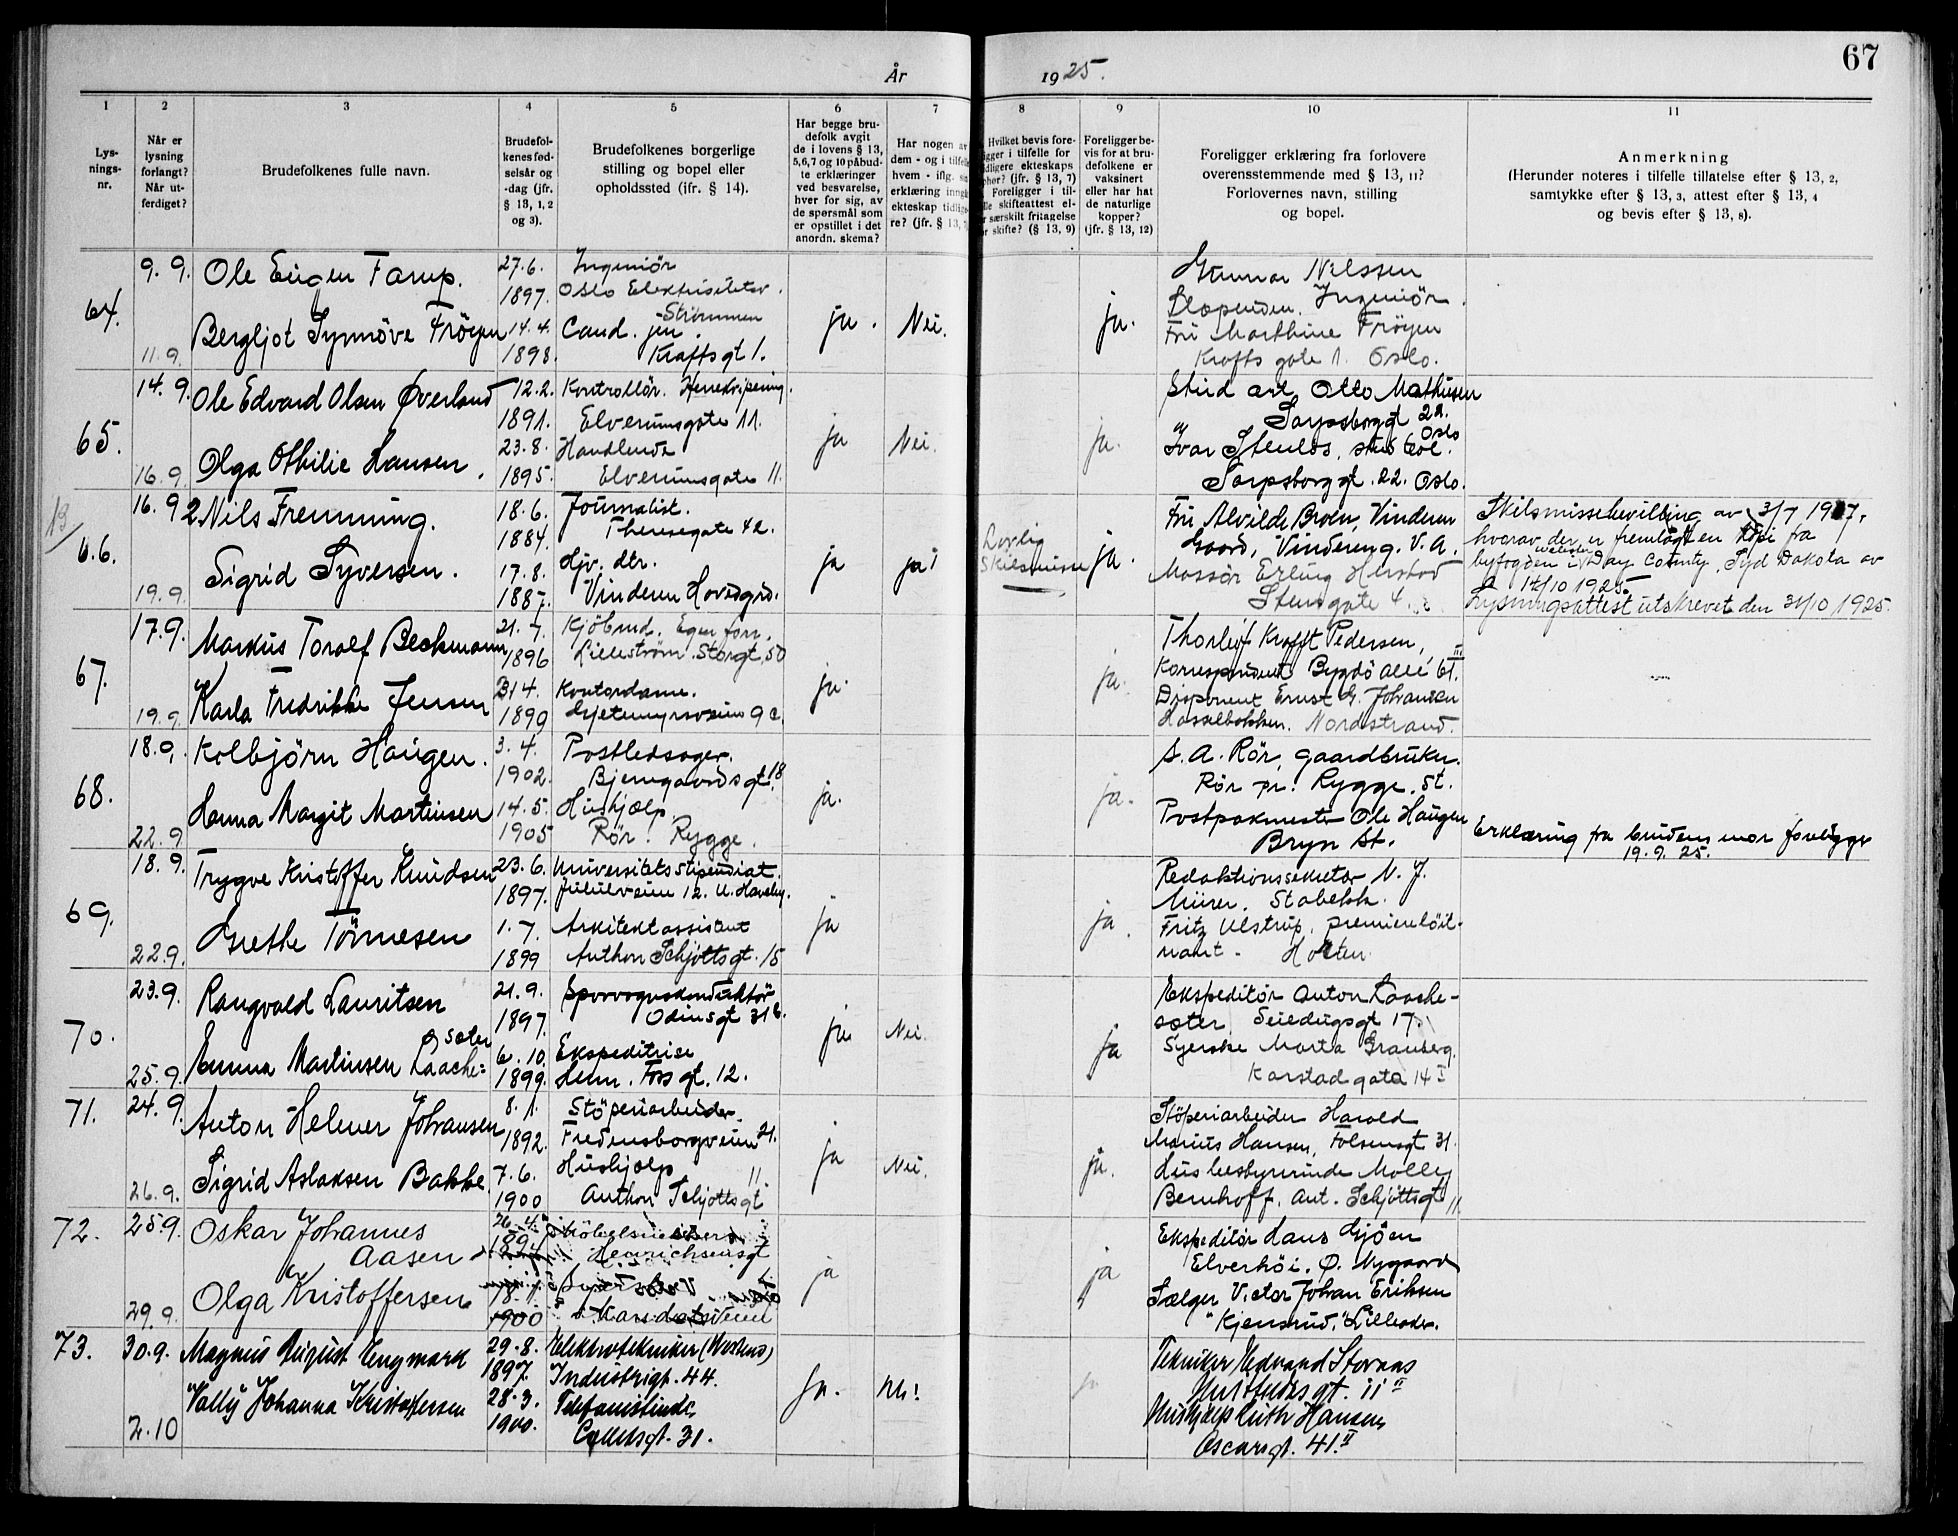 67
År 1925.
1 2 3 4 5 6 7 8 9 10 11
Lysnings-nr.
Når er lysning forlangt? Når utferdiget?
Brudefolkenes fulle navn.
Brudefolkenes fødselsår og -dag (jfr. § 13, 1, 2 og 3).
Brudefolkenes borgerlige stilling og bopel eller opholdssted (ifr. § 14).
Har begge brudefolk avgit de i lovens § 13, 5,6,7 og 10 påbudte erklæringer ved besvarelse, hver for sig, av de spørsmål som er opstillet i det anordn. skema?
Har nogen av dem - og i tilfelle hvem - iflg. sin erklæring inngått ekteskap tidligere? (jfr. § 13, 7)
Hvilket bevis fore-
Foreligger i til-
skifteattest el-
særskilt fritagelse
skifte? (§ 13, 9)
Foreligger bevis for at brudefolkene er vaksinert eller har hat de naturlige kopper? (jfr. § 13, 12)
Foreligger erklæring fra forlovere overensstemmende med § 13, 11? Forlovernes navn, stilling og bopel.
Anmerkning
(Herunder noteres i tilfelle tillatelse efter § 13, 2, samtykke efter § 13, 3, attest efter § 13, 4 og bevis efter § 13, 8).
64. 9.9. Ole Eugen Farup. 27.6. 1897. Ingeniör Oslo Elektrisitetsv. Strömmen
11.9. Bergljot Synnöve Fröyen 14.4. 1898. Cand. jur. Krafts gt 1.
ja. Nei. ja.
Gunnar Nilssen
Slependen. Ingeniör.
Fru Marthine Fröyen
Krafts gate 1. Oslo.
65. 14.9. Ole Edvard Olsen Øverland 12.2. 1891. Kontrollör. Elverumsgate 11.
16.9. Olga Othilie Hansen. 23.8. 1895. Handlende Elverumsgate 11.
ja Nei. ja.
Stud art Otto Mathiesen
Sarpsborg gt 22. Oslo
Ivar Stenlös, stud
Sarpsborg gt. 22. Oslo.
13
66. 16.9 2 Nils Fremming. 18.6. 1884. Journalist. Theresegate 42.
19.9. Sigrid Syversen. 17.8. 1887. Hjv. dtr. Vinderen Hovedgrd.
ja ja! Lovlig Skilsmisse ja.
Fru Alvilde Broen, Vinderen
Gaard, Vinderen g. V. A.
Massör Erling Herstad
Stensgate 4.
Skilsmissebevilling av 3/7 1917,
hvorav der er fremlagt en kopi fra
byfogden i Webster Day County, Syd Dakota av
14/10 1925.
Lysningsattest utskrevet den 31/10 1925.
67. 17.9. Markus Toralf Beckmann 21.7. 1896 Kjöbmd. Egen forr. Lilleström. Storgt 50
19.9. Karla Fredrikke Jensen 31 4. 1899 Kontordame. Gjetemyrsveien 9 c.
ja. ja.
Thorleif Krafft Pedersen,
Korrespondent Bygdö alle 61. III
Disponent Ernst G. Johansen
Hasselbakken. Nordstrand.
68. 18.9. Kolbjörn Haugen. 3.4. 1902. Postledsager. Bjerregaards gt 18.
22.9 Hanna Margit Martinsen 14.5. 1905 Hushjælp Rör. Rygge.
ja. ja.
S. A. Rör, gaardbruker.
Rör pr. Rygge. St.
Postpakmester Ole Haugen
Bryn St.
Erklæring fra brudens mor foreligger
19.9.25.
69. 18.9. Trygve Kristoffer Knudsen 23.6. 1897. Universitetsstipendiat. 12. U. Haveby.
22.9. Grethe Tönnesen 1.7. 1899 Arkitektassistent Anthon Schjötts gt. 15
ja ja.
Redaktionssekretær N. J.
Mürer. Stabekk.
Fritz Ulstrup, premierlöit-
nant. Holten.
70. 23.9. Rangvald Lauritsen 21.9. 1897. Sporvognskonduktör Odins gt 31 b.
25.9. Emma Martinsen Laache=sæter 6.10. 1899. Ekspeditrise Henr. Foss gt. 12.
ja. Nei. ja
Ekspeditör Anton Laache-
sæter. Seildugsgt 17.
Syerske Marta Granberg.
Karstad gata 14 I
71. 24.9. Anton Helmer Johansen 8.1. 1892. Stöperiarbeider. Fredensborgveien 21.
26.9. Sigrid Aslaksen Bakke 7.6. 1900 Hushjælp Anthon Schjöttsgt 11.
ja Nei. ja.
Stöperiarbeider Harald
Marius Hansen, Falsensgt 31.
Husbestyrerinde Molly
Bernhoff. Ant. Schjöttsgt 11.
72. 25.9. Oskar Johannes Aasen 26.4. 1894 Henrichsensgt
29.9. Olga Kristoffersen 18.1. 1900
ja ja
Ekspeditör Hans Gjöen
Elverhöi. Ø. Nygaard
Sælger Victor Johan Eriksen
"Kjensrud," Lilleaker.
73. 30.9. Magnus August Engmark 29.8. 1897. Elektrotekniker (Westend) Industrigt. 44.
2.10 Vally Johanna Kristoffersen 28.3. 1900. Telefonistinde Colletsgt. 31.
ja. Nei! ja
Tekniker Edvard Storaas
gt. 11 II
Hushjælp Ruth Hansen
Oscarsgt. 41. II